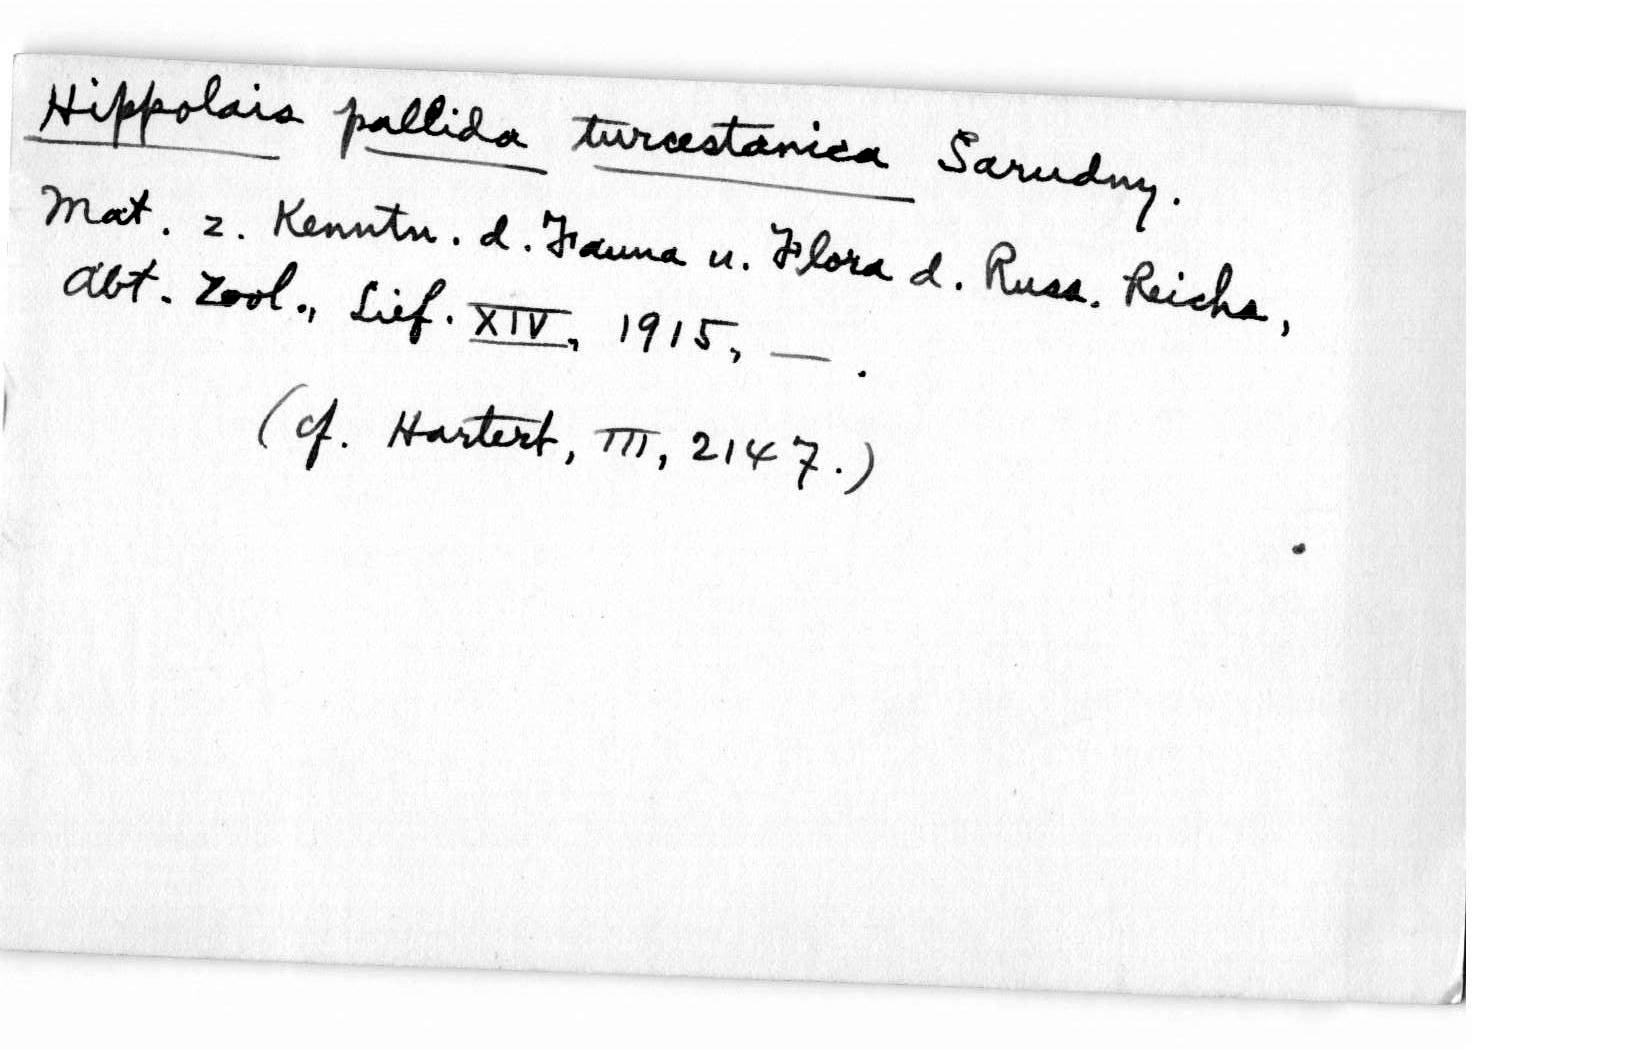 Hippolais pallida turcestanica Sarudny.
Mat. z. Kenntn. d. Fauna u. Flora d. Russ. Reichs,
Abt. Zool., Lief. XIV, 1915, — .
(cf. Hartert, III, 2147.)